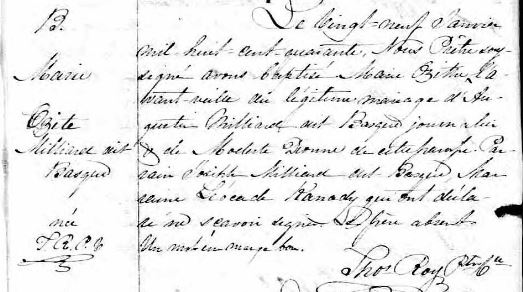 B.
Marie
Ozite
Milliard dit
Basque
née
Le vingt-neuf Janvier
mil-huit-cent-quarante, Nous Prêtre sous-
signé avons baptisé Marie Ozithe
vant-veille du légitime mariage d'Au-
gustin Milliard dit Basque journalier
& de Modeste Dionne de cette paroisse. Par-
rain Joseph Milliard dit Basque Mar-
raine Léocade Kanady qui ont décla-
ré ne scavoir signer. Le père absent.
Un mot en marge bon.
Thos Roy Ptre